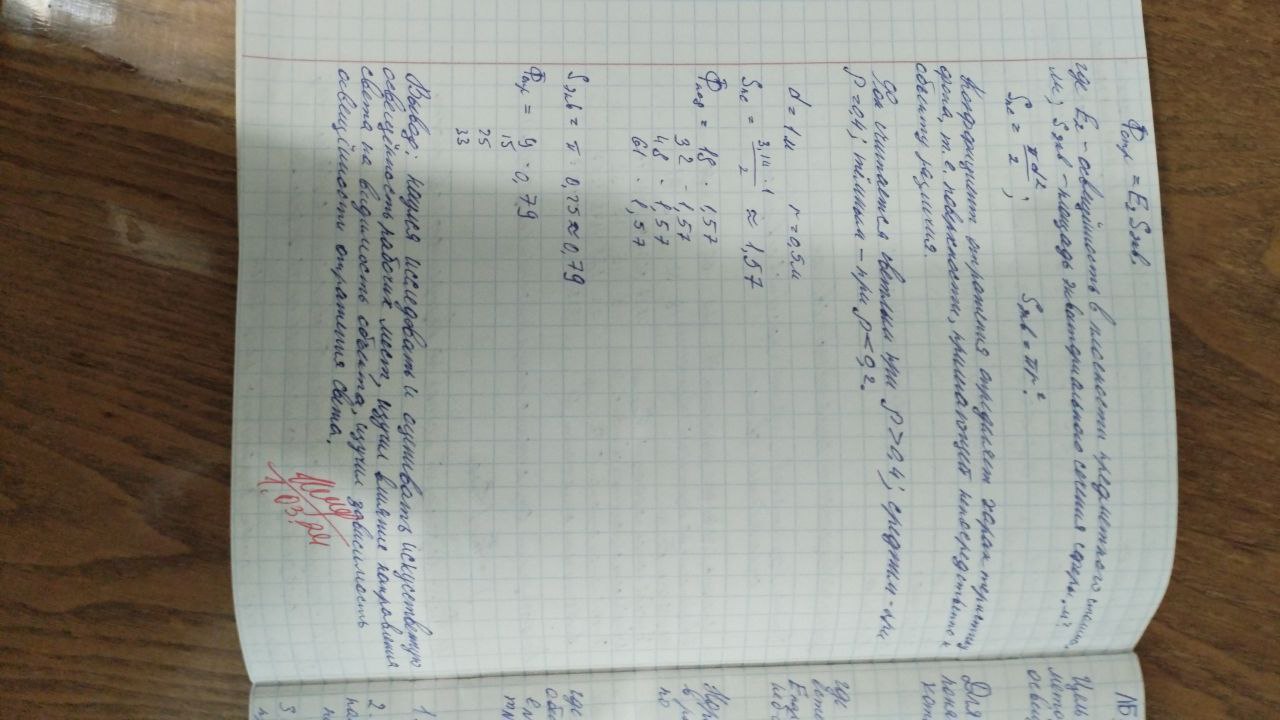 Φотр = E₂ Sэкв.
где E₂ - освещённость в плоскости предметного столика,
лк; Sэкв - площадь экваториального сечения сферы, м².
Sпс = πd²/2 ; Sэкв = πr².
Коэффициент отражения определяет характеристику
фона, т.е. поверхности, прилегающей непосредственно к
объекту различия.
Фон считается светлым при ρ > 0,4; средним - при
ρ = 0,4; тёмным - при ρ < 0,2.
d = 1м r = 0,5м
Sпс = 3,14 · 1/2 ≈ 1,57
Φпад = 18 · 1,57
32 · 1,57
48 · 1,57
61 · 1,57
Sэкв = π · 0,25 ≈ 0,79
Φотр = 9 · 0,79
15
25
33
Вывод: научился исследовать и оценивать искусственную
освещённость рабочих мест, изучил влияние направления
света на видимость объекта, изучил зависимость
освещённости отражения света.
1.03.24
ЛБ
Цель
мето
освещ
Для
поня
хот
где
есте
Eнар
неб
в р
по
где
1.
2.
3